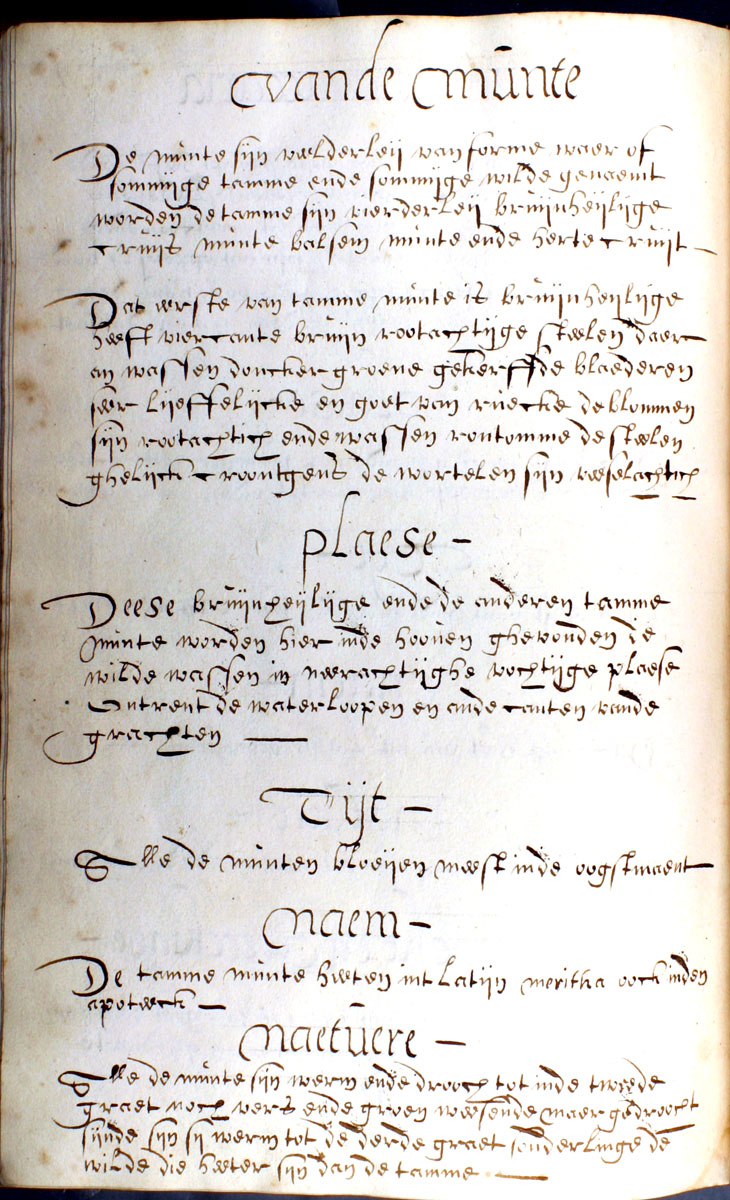 vande munte
De munte sijn veelderleij van forme waer of
sommijge tamme ende sommijge wilde genaemt
worden de tamme sijn vierderleij bruijnheijlijge
cruijs munte balsem munte ende herte cruijt
Dat eerste van tamme munte is bruijnheijlijge
heeft viercante bruijn rootachtijge steelen daer
an wassen doncker groene gekerffde blaederen
seer lijeffelijcke en goet van ruecke de blommen
sijn rootachtich ende wassen rontomme de steelen
ghelijck croontgens de wortelen sijn veeselachtich
plaese
Deese bruijnheijlijge ende de anderen tamme
munte worden hier inde hooven ghevonden de
wilde wassen in neerachtijghe vochtijge plaese
Ontrent de waterloopen en ande canten vande
grachten
Tijt
Alle de munten bloeijen meest inde oogstmaent
Naem
De tamme munte hieten int Latijn mentha oock inden
apoteeck
Naetuere
Alle de munte sijn werm ende drooch tot inde tweede
graet noch vers ende groen weesende maer gedroocht
sijnde sijn sij werm tot de derde graet sonderlinge de
wilde die heeter sijn dan de tamme